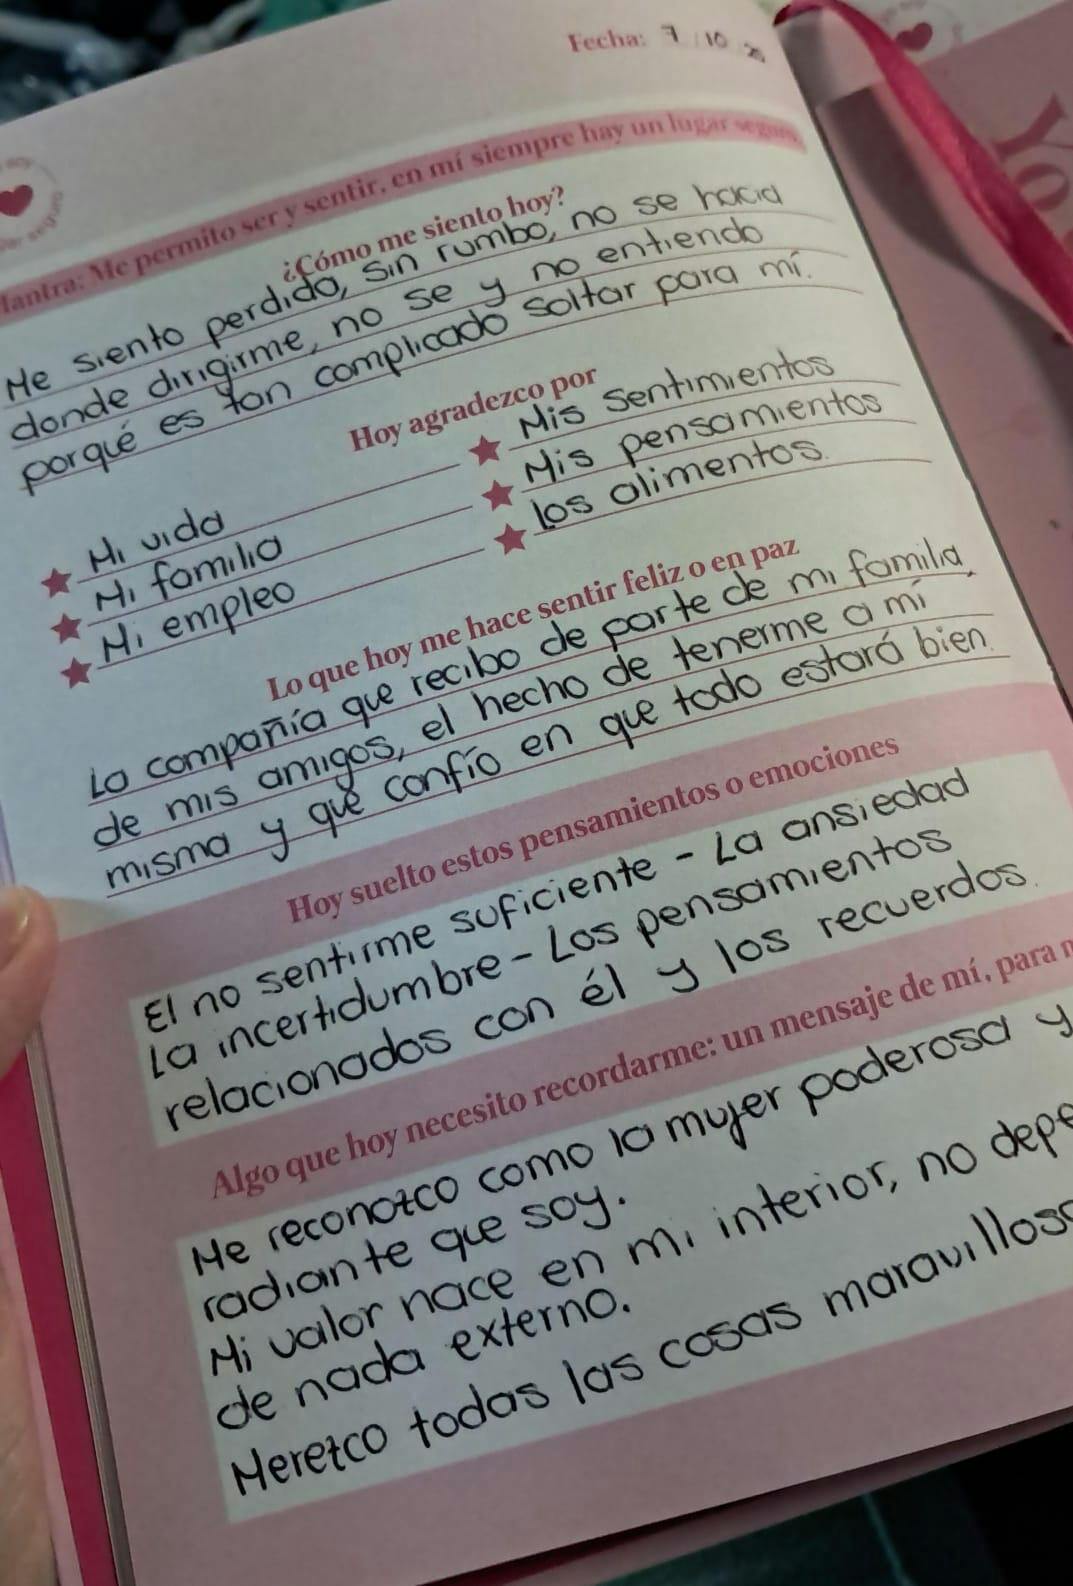 Fecha: 7/10
Mantra: Me permito ser y sentir, en mí siempre hay un lugar seguro
¿Cómo me siento hoy?
Me siento perdida, sin rumbo, no se hacia
donde dirigirme, no se y no entiendo
porqué es tan complicado soltar para mí.
Hoy agradezco por
Mi vida
Mi familia
Mi empleo
Mis sentimientos
Mis pensamientos
los alimentos.
Lo que hoy me hace sentir feliz o en paz
La compañía que recibo de parte de mi familia,
de mis amigos, el hecho de tenerme a mí
misma y que confío en que todo estará bien.
Hoy suelto estos pensamientos o emociones
El no sentirme suficiente - La ansiedad
La incertidumbre - Los pensamientos
relacionados con él y los recuerdos.
Algo que hoy necesito recordarme: un mensaje de mí, para
Me reconozco como la mujer poderosa y
radiante que soy.
Mi valor nace en mi interior, no depe
de nada externo.
Merezco todas las cosas maravillos
Yo